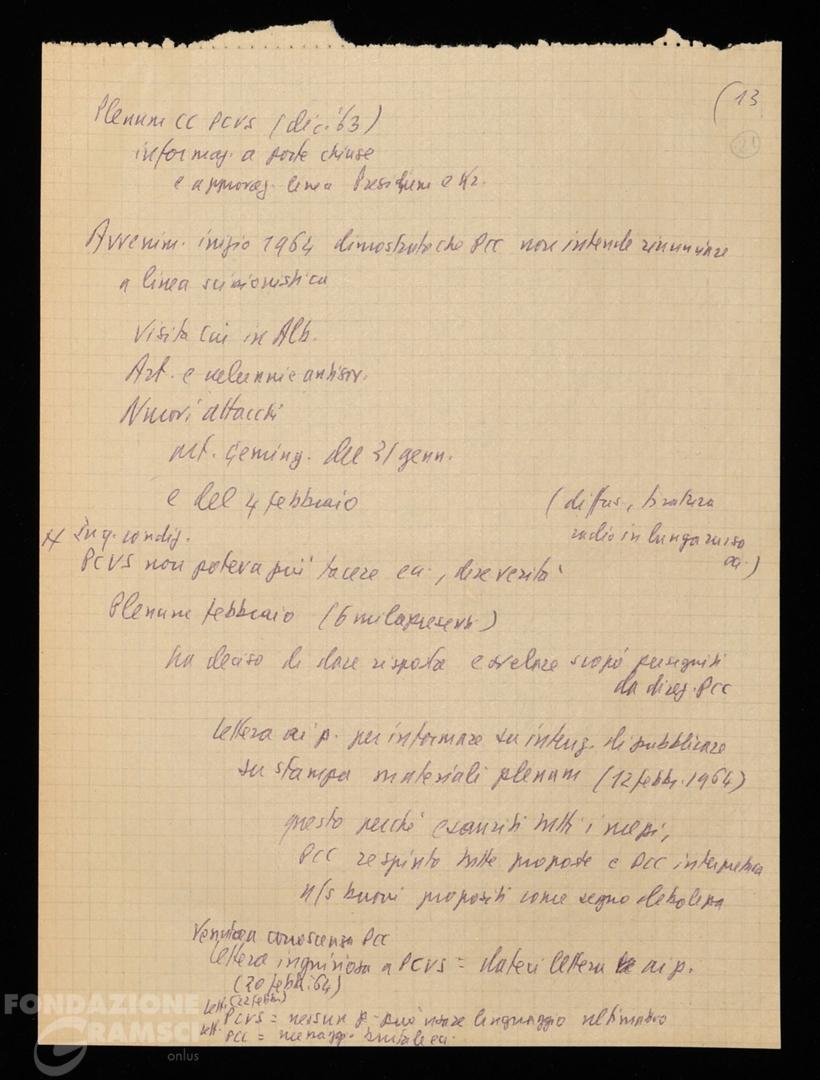 (13
21
Plenum CC PCUS (dic. '63)
informaz. a porte chiuse
e approvaz. linea Presidium e Kr.
Avvenim. inizio 1964 dimostrato che PCC non intende rinunciare
a linea scissionistica
Visita Ciu in Alb.
Art. e calunnie antisov.
Nuovi attacchi
art. Geming. del 31 genn.
e del 4 febbraio
(diffus., tiratura
radio in lingua russa
ecc.)
In q. condiz.
PCUS non poteva più tacere ecc., dire verità
Plenum febbraio (6 mila presenti)
ha deciso di dare risposta e svelare scopi perseguiti
da direz. PCC
lettera ai p. per informare su intenz. di pubblicare
su stampa materiali plenum (12 febbr. 1964)
questo perché esauriti tutti i mezzi,
PCC respinto tutte proposte e PCC interpretava
n/s buoni propositi come segno debolezza
Venuta a conoscenza PCC
lettera ingiuriosa a PCUS = dateci lettera ai p.
(20 febbr. 64)
lett. (22 febbr.)
PCUS = nessun p. può usare linguaggio ultimativo
lett. PCC =
FONDAZIONE
GRAMSCI
onlus